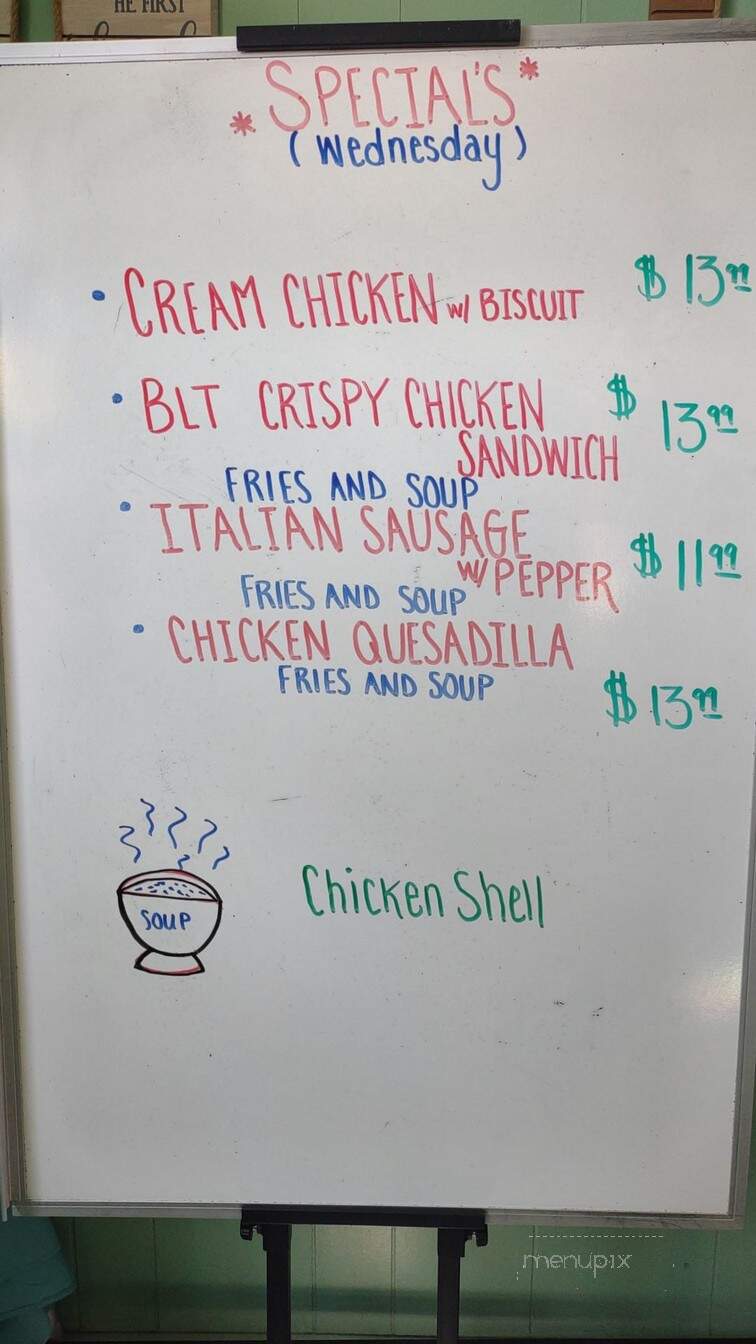 HE FIRST
* SPECIAL'S *
(Wednesday)
• CREAM CHICKEN w/ BISCUIT $ 13.99
• BLT CRISPY CHICKEN $ 13.99
SANDWICH
FRIES AND SOUP
• ITALIAN SAUSAGE $ 11.99
w/ PEPPER
FRIES AND SOUP
• CHICKEN QUESADILLA
FRIES AND SOUP $ 13.99
SOUP Chicken Shell
menupix